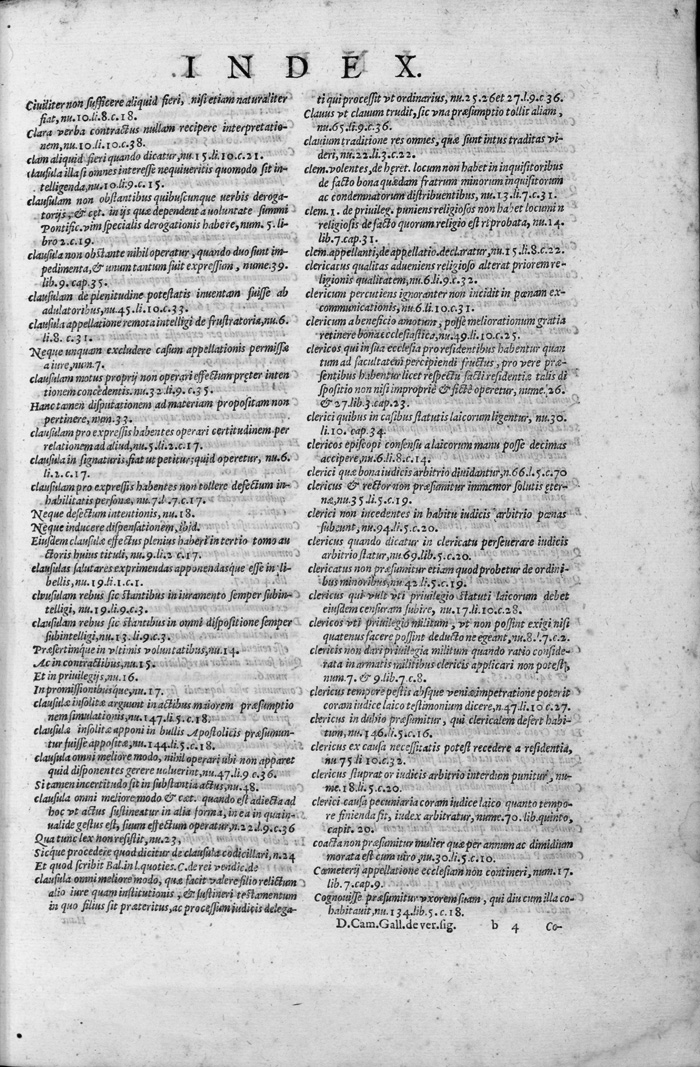 INDEX.
Ciuiliter non sufficere aliquid fieri, nisi etiam naturaliter
fiat, nu.10.li.8.c.18.
Clara verba contractus nullam recipere interpretatio-
nem, nu.10.li.10.c.38.
clam aliquid fieri quando dicatur, nu.15.li.10.c.21.
clausula illa si omnes interesse nequiueritis quomodo sit in-
telligenda, nu.10.li.9.c.15.
clausulam non obstantibus quibuscunque verbis deroga-
torijs, & cęt. in ijs quæ dependent a voluntate summi
Pontific. vim specialis derogationis habere, num. 5. li-
bro 2.c.19.
clausula non obstante nihil operatur, quando duo sunt im-
pedimenta, & unum tantum fuit expressum, nume.39.
lib.9.cap.35.
clausulam de plenitudine potestatis inuentam fuisse ab
adulatoribus, nu.45.li.10.c.33.
clausula appellatione remota intelligi de frustratoria, nu.6.
li.8. c.31.
Neque unquam excludere casum appellationis permissæ
a iure, num.7.
clausulam motus proprij non operari effectum præter inten
tionem concedentis. nu.32.li.9.c.35.
Hanc tamen disputationem ad materiam propositam non
pertinere, num.33.
clausulam pro expressis habentes operari certitudinem per
relationem ad aliud, nu.5.li.2.c.17.
clausula in signaturis fiat ut petitur; quid operetur, nu.6.
li.2.c.17.
clausulam pro expressis habentes non tollere defectum in-
habilitatis personæ, nu.7.l.7.c.17.
Neque defectum intentionis, nu.18.
Neque inducere dispensationem, ibid.
Eiusdem clausulæ effectus plenius haberi in tertio tomo au
ctoris huius tituli, nu.9.li.2 c.17.
clausulas salutares exprimendas apponendasque esse in li-
bellis, nu.19.li.1.c.1.
clausulam rebus sic stantibus in iuramento semper subin-
telligi, nu.19.li.9.c.3.
clausulam rebus sic stantibus in omni dispositione semper
subintelligi, nu.13.li.9.c.3.
Præsertimque in vltimis voluntatibus, nu.14.
Ac in contractibus, nu.15.
Et in priuilegijs, nu.16.
In promissionibusque, nu.17.
clausulæ insolitæ arguunt in actibus maiorem præsumptio
nem simulationis, nu.147.li.5.c.18.
clausulæ insolitæ apponi in bullis Apostolicis præsumun-
tur fuisse appositæ, nu.144.li.5.c.18.
clausula omni meliore modo, nihil operari ubi non apparet
quid disponentes gerere uoluerint, nu.47.li.9 c.36.
Si tamen incertitudo sit in substantia actus, nu.48.
clausula omni meliore modo & cæt. quando est adiecta ad
hoc vt actus sustineatur in alia forma, in ea in qua in-
ualide gestus est, suum effectum operatur, n.22.l.9.c.36
Qua tunc lex non resistit, nu.23,
Sicque procedere quod dicitur de clausula codicillari, n.24
Et quod scribit Bal.in l.quoties. C.de rei vendic. de
clausula omni meliore modo, quæ facit valere filio relictum
alio iure quam institutionis, & sustineri testamentum
in quo filius sit præteritus, ac processum iudicis delega-
ti qui processit vt ordinarius, nu.25.26 et 27.l.9.c 36.
Clauus vt clauum trudit, sic vna præsumptio tollit aliam,
nu.65.li.9.c.36.
clauium traditione res omnes, quæ sunt intus traditas vi-
deri, nu.22.li.3.c.22.
clem.volentes, de hæret. locum non habet in inquisitoribus
de facto bona quædam fratrum minorum inquisitorum
ac condemnatorum distribuentibus, nu.13.li.7.c.31.
clem.1. de priuileg. puniens religiosos non habet locum in
religiosis de facto quorum religio est riprobata, nu.14.
lib.7.cap.31.
clem.appellanti, de appellatio.declaratur, nu.15.li.8.c.22.
clericatus qualitas adueniens religioso alterat priorem re-
ligionis qualitatem, nu.6.li.9.c.32.
clericum percutiens ignoranter non incidit in pœnam ex-
communicationis, nu.6.li.10.c.31.
clericum a beneficio amotum, posse meliorationum gratia
retinere bona ecclesiastica, nu.49.li.10.c.25.
clericos qui in sua ecclesia pro residentibus habentur quan
tum ad facultatem percipiendi fructus, pro vere præ-
sentibus habentur licet respectu facti residentiæ talis di
spositio non nisi impropriè & fictè operetur, nume.26.
& 27.lib.3.cap.23.
clerici quibus in casibus statutis laicorum ligentur, nu.30.
li.10. cap.34.
clericos episcopi consensu a laicorum manu posse decimas
accipere, nu.6.li.8.c.14.
clerici quæ bona iudicis arbitrio diuidantur, n.66.l.5.c.70
clericus & rector non præsumitur immemor salutis eter-
næ, nu.35.li.5.c.19.
clerici non incedentes in habitu iudicis arbitrio pœnas
subeunt, nu.94.li.5.c.20.
clericus quando dicatur in clericatu perseuerare iudicis
arbitrio statur, nu.69.lib.5.c.20.
clericatus non præsumitur etiam quod probetur de ordini-
bus minoribus, nu 42.li.5.c.19.
clericus qui vult vti priuilegio statuti laicorum debet
eiusdem censuram subire, nu.17.li.10.c.28.
clericos vti priuilegio militum, vt non possint exigi nisi
quatenus facere possint deducto ne egeant, nu.8.l.7.c.2.
clericis non dari priuilegia militum quando ratio conside-
rata in armatis militibus clericis applicari non potest,
num.7. & 9.lib.7.c.8.
clericus tempore pestis absque veniæ impetratione poterit
coram iudice laico testimonium dicere, n.47.li.10.c.27.
clericus in dubio præsumitur, qui clericalem defert habi-
tum, nu.146.li.5.c.16.
clericus ex causa necessitatis potest recedere a residentia,
nu 75 li 10.c.32.
clericus stuprator iudicis arbitrio interdum punitur, nu-
me.18.li.5.c.20.
clerici causa pecuniaria coram iudice laico quanto tempo-
re finienda sit, iudex arbitratur, nume.70.lib.quinto,
capit.20.
coacta non præsumitur mulier quæ per annum ac dimidium
morata est cum viro, nu.30.li.5.c.10.
Cœmeterij appellatione ecclesiam non contineri, num.17.
lib.7.cap.9.
Cognouisse præsumitur vxorem suam, qui diu cum illa co-
habitauit, nu.134.lib.5.c.18.
D.Cam.Gall.de ver.sig. b 4 Co-